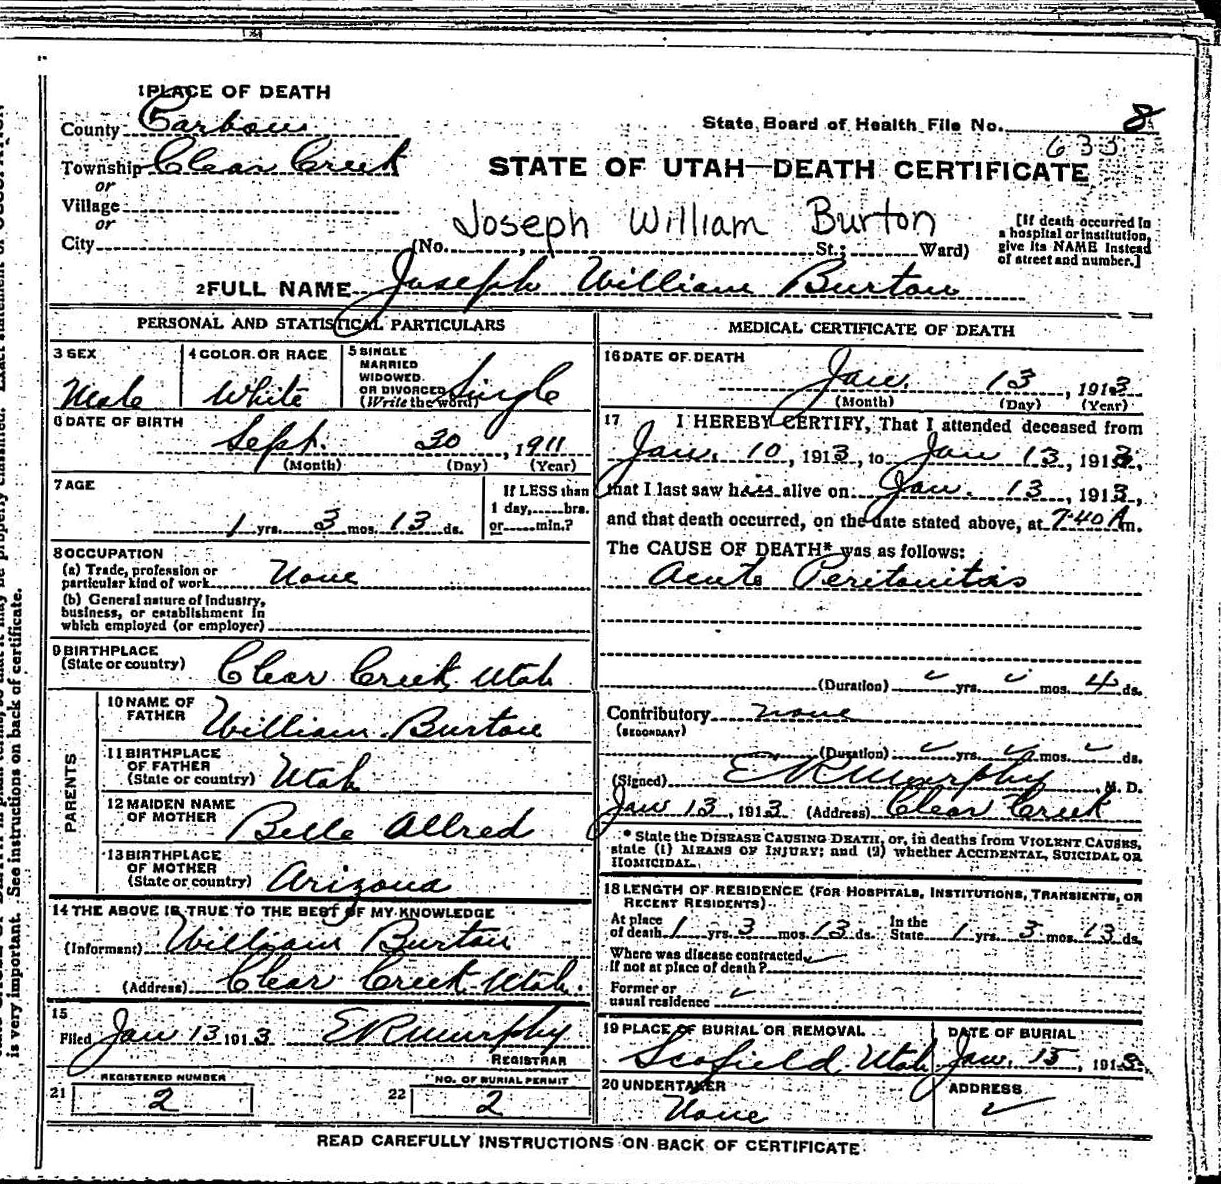 1 PLACE OF DEATH
County Carbon
State Board of Health File No. 8
633
Township Clear Creek
STATE OF UTAH—DEATH CERTIFICATE
or
Village
or
Joseph William Burton
City (No. , St.; Ward)
[If death occurred in a hospital or institution, give its NAME instead of street and number.]
2 FULL NAME Joseph William Burton
PERSONAL AND STATISTICAL PARTICULARS
3 SEX
Male
4 COLOR OR RACE
White
5 SINGLE
MARRIED
WIDOWED
OR DIVORCED
(Write the word)
Single
6 DATE OF BIRTH
Sept. 30, 1911
(Month) (Day) (Year)
7 AGE
1 yrs. 3 mos. 13 ds.
If LESS than
1 day,.....hrs.
or.....min.?
8 OCCUPATION
(a) Trade, profession or
particular kind of work None
(b) General nature of Industry,
business, or establishment in
which employed (or employer)
9 BIRTHPLACE
(State or country) Clear Creek Utah
PARENTS
10 NAME OF
FATHER William Burton
11 BIRTHPLACE
OF FATHER
(State or country) Utah
12 MAIDEN NAME
OF MOTHER Belle Allred
13 BIRTHPLACE
OF MOTHER
(State or country) Arizona
14 THE ABOVE IS TRUE TO THE BEST OF MY KNOWLEDGE
(Informant) William Burton
(Address) Clear Creek Utah.
15
Filed Jan 13 1913 E R Murphy
REGISTRAR
REGISTERED NUMBER
21 2
NO. OF BURIAL PERMIT
22 2
MEDICAL CERTIFICATE OF DEATH
16 DATE OF DEATH
Jan. 13, 1913
(Month) (Day) (Year)
17 I HEREBY CERTIFY, That I attended deceased from
Jan. 10, 1913, to Jan 13, 1913,
that I last saw him alive on Jan. 13, 1913,
and that death occurred, on the date stated above, at 7:40 A m.
The CAUSE OF DEATH* was as follows:
Acute Peritonitis
(Duration) yrs. mos. 4 ds.
Contributory none
(SECONDARY)
(Duration) yrs. mos. ds.
(Signed) E R Murphy, M. D.
Jan 13, 1913 (Address) Clear Creek
* State the DISEASE CAUSING DEATH, or, in deaths from VIOLENT CAUSES,
state (1) MEANS OF INJURY; and (2) whether ACCIDENTAL, SUICIDAL OR
HOMICIDAL.
18 LENGTH OF RESIDENCE (FOR HOSPITALS, INSTITUTIONS, TRANSIENTS, OR
RECENT RESIDENTS)
At place
of death 1 yrs. 3 mos. 13 ds.
In the
State 1 yrs. 3 mos. 13 ds.
Where was disease contracted
if not at place of death?
Former or
usual residence
19 PLACE OF BURIAL OR REMOVAL
Scofield, Utah
DATE OF BURIAL
Jan. 15, 1913
20 UNDERTAKER
None
ADDRESS
READ CAREFULLY INSTRUCTIONS ON BACK OF CERTIFICATE
is very important. See instructions on back of certificate.